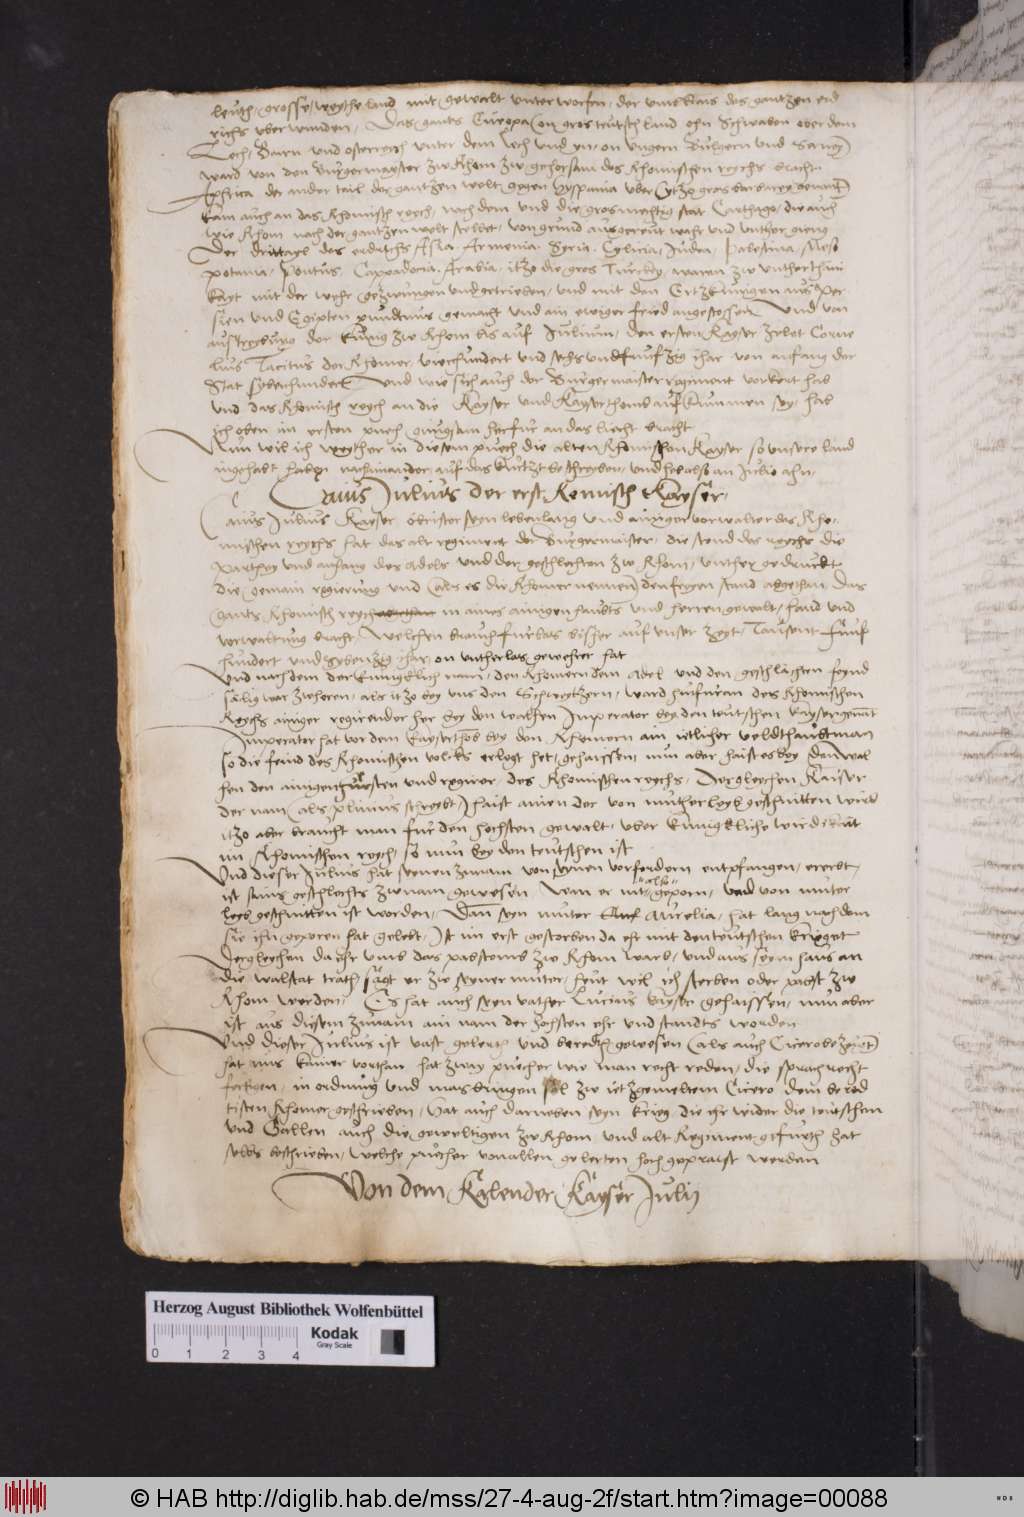 leuth, grosse, weythe land mit gewalt unterworfen, der umbkrais des gantzen erd
richs uberwunden, Das gants Europa (on gros teutsch land ohn Schwaben ober dem
Lech, Bairn und osterreych unter dem Lech und yn, on Ungern Bulgern und
ward von den Burgermayster zw Rhom zw gehorsam des Rhomischen reychs bracht
Aphrica der ander tail der gantzen welt gegen Hyspania uber itzo gros barbarey genant
kam auch an das Rhomisch reych, nach dem und die grosmechtig stat Carthago, die auch
wie Rhom nach der gantzen welt stellet, von grund ausgereut wahr und unther gieng
Der drittayl des erdrichs Asia, Armenia, Syria, Cylicia, Judea, Palestina, Meso
potania, Pontus, Cappadocia, Arabia, itzo die gros Turckey, waren zw unterthani
kayt mit der wehr gezwungen und getrieben, und mit den Ertzkunigen aus Per
sien und Egipten puntnus gemacht und ain ewiger fried angestossen Und von
austreybung der kunig zw Rhom bis auf Julium, den ersten Kayser zelet Corne
lius Tacitus der Rhomer, vierhundert und sechs und funfzig ihar von anfang der
Stat sybenhundert Und wie sich auch der Burgermaister regiment verkert hab
und das Rhomisch reych an die Kayser und Kayserthomb aufkummen sey, hab
ich oben im ersten puech gnugsam herfur an das liecht bracht
Nun wil ich weyther in diesem puech die alten Rhomischen Kayser so unsere land
ingehabt haben nacheinander auf das kurtzt beschreyben, und heb also an Julio ahn,
Caius Julius der erst Romisch Kayser,
Caius Julius Kayser obrister seyn lebenlang und ainiger verwalter des Rho,
mischen reychs hat das alt regiment der Burgermaister, die stend des reychs die
Partheyy und anhang des Adels und der geschlechten zw Rhom, unther gedruckt
die gemain regierung und (als es die Rhomer nennen) den freyen stand abgethan, Das
gants Rhomisch reych in aines ainigen haubts und herren gewalt, hand und
verwaltung bracht, Welchen brauch furbas bisher auf unser zeyt, Tausent funf
hundert und sybenzig ihar on untherlas gewehret hat
Und nach dem der kunigklich nam, den Rhomern dem Adel und den geschlachten feynd
sälig war zwhoren, als itzo bey uns den Schweytzern, ward hinfuran des Rhomischen
Reychs ainiger regirender her bey den walhen Imperator bey den teutschen Kayser genant
Imperator hat vor dem Kayserthob bey den Rhomern ain ietlicher veldthaubtman
so die feind des Rhomischen volcks erlegt het, gehaissen, nun aber haist es bey den wal
hen den ainigen fursten und regirer des Rhomischen reychs, Dergleychen Kaiser
der nam (als Plinius schreybt) haist ainen der von muther leyb geschnitten wird
itzo aber braucht man fur den hochsten gewalt, uber kunigkliche wird
im Rhomischen reych, so nun bey den teutschen ist
Und dieser Julius hat seynen zunam von seynen vorfordern entpfangen, ererbt,
ist seins geschlechts zunam gewesen Wan er nit also geporn, und von muter
leyb geschnitten ist worden, Dan seyn muter Aurelia, hat lang nach dem
sie ihn geporen hat gelebt, Ist im erst gestorben da ehr mit den teutschen krieget
Dergleychen da ehr umb das pabstomb zw Rhom warb, und aus seym haus an
die walstat trath, sagt er zw seyner muter, heut wil ich sterben oder pabst zw
Rhom werden, Es hat auch seyn vather Lucius kayser gehaissen, nun aber
ist aus diesem zunam ain nam der hochsten ehr und standts worden
Und dieser Julius ist vast gelert und beredt gewesen (als auch Cicero bezeugt)
hat uns kainer vorthan hat zway puecher wie man recht reden, die sprach recht
in ordnung und mas bringen sol zw ietzgemeltem Cicero dem bered
tisten Rhomer geschrieben, Hat auch darneben seyn krieg die ehr wider die teutschen
und Gallen auch die geweltigen zw Rhom und alt Regiment gefurth hat
selbs beschrieben, welche puecher von allen gelerten hoch gepraist werden
Von dem Kalender Kayser Julij
Herzog August Bibliothek Wolfenbüttel
0 1 2 3 4
Kodak
Gray Scale
© HAB http://diglib.hab.de/mss/27-4-aug-2f/start.htm?image=00088